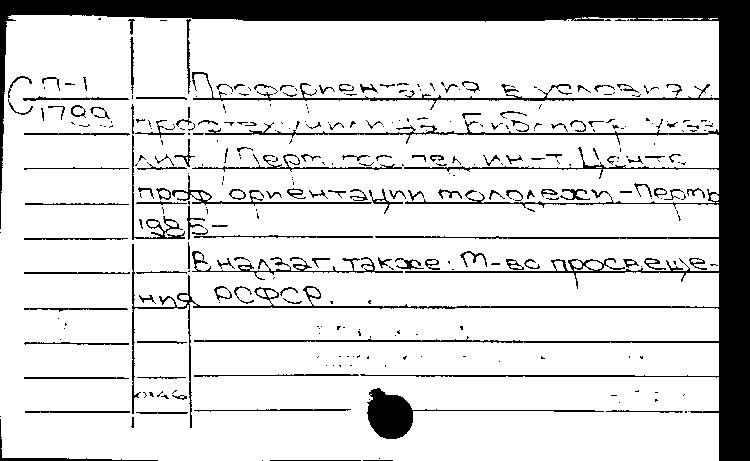 С П-1
1799
Профориентация в условиях
профтехучилища: Библиогр. указ.
лит. / Перм. гос. пед. ин-т. Центр
проф. ориентации молодежи. - Пермь
1985-
В надзаг. также: М-во просвеще-
ния РСФСР.